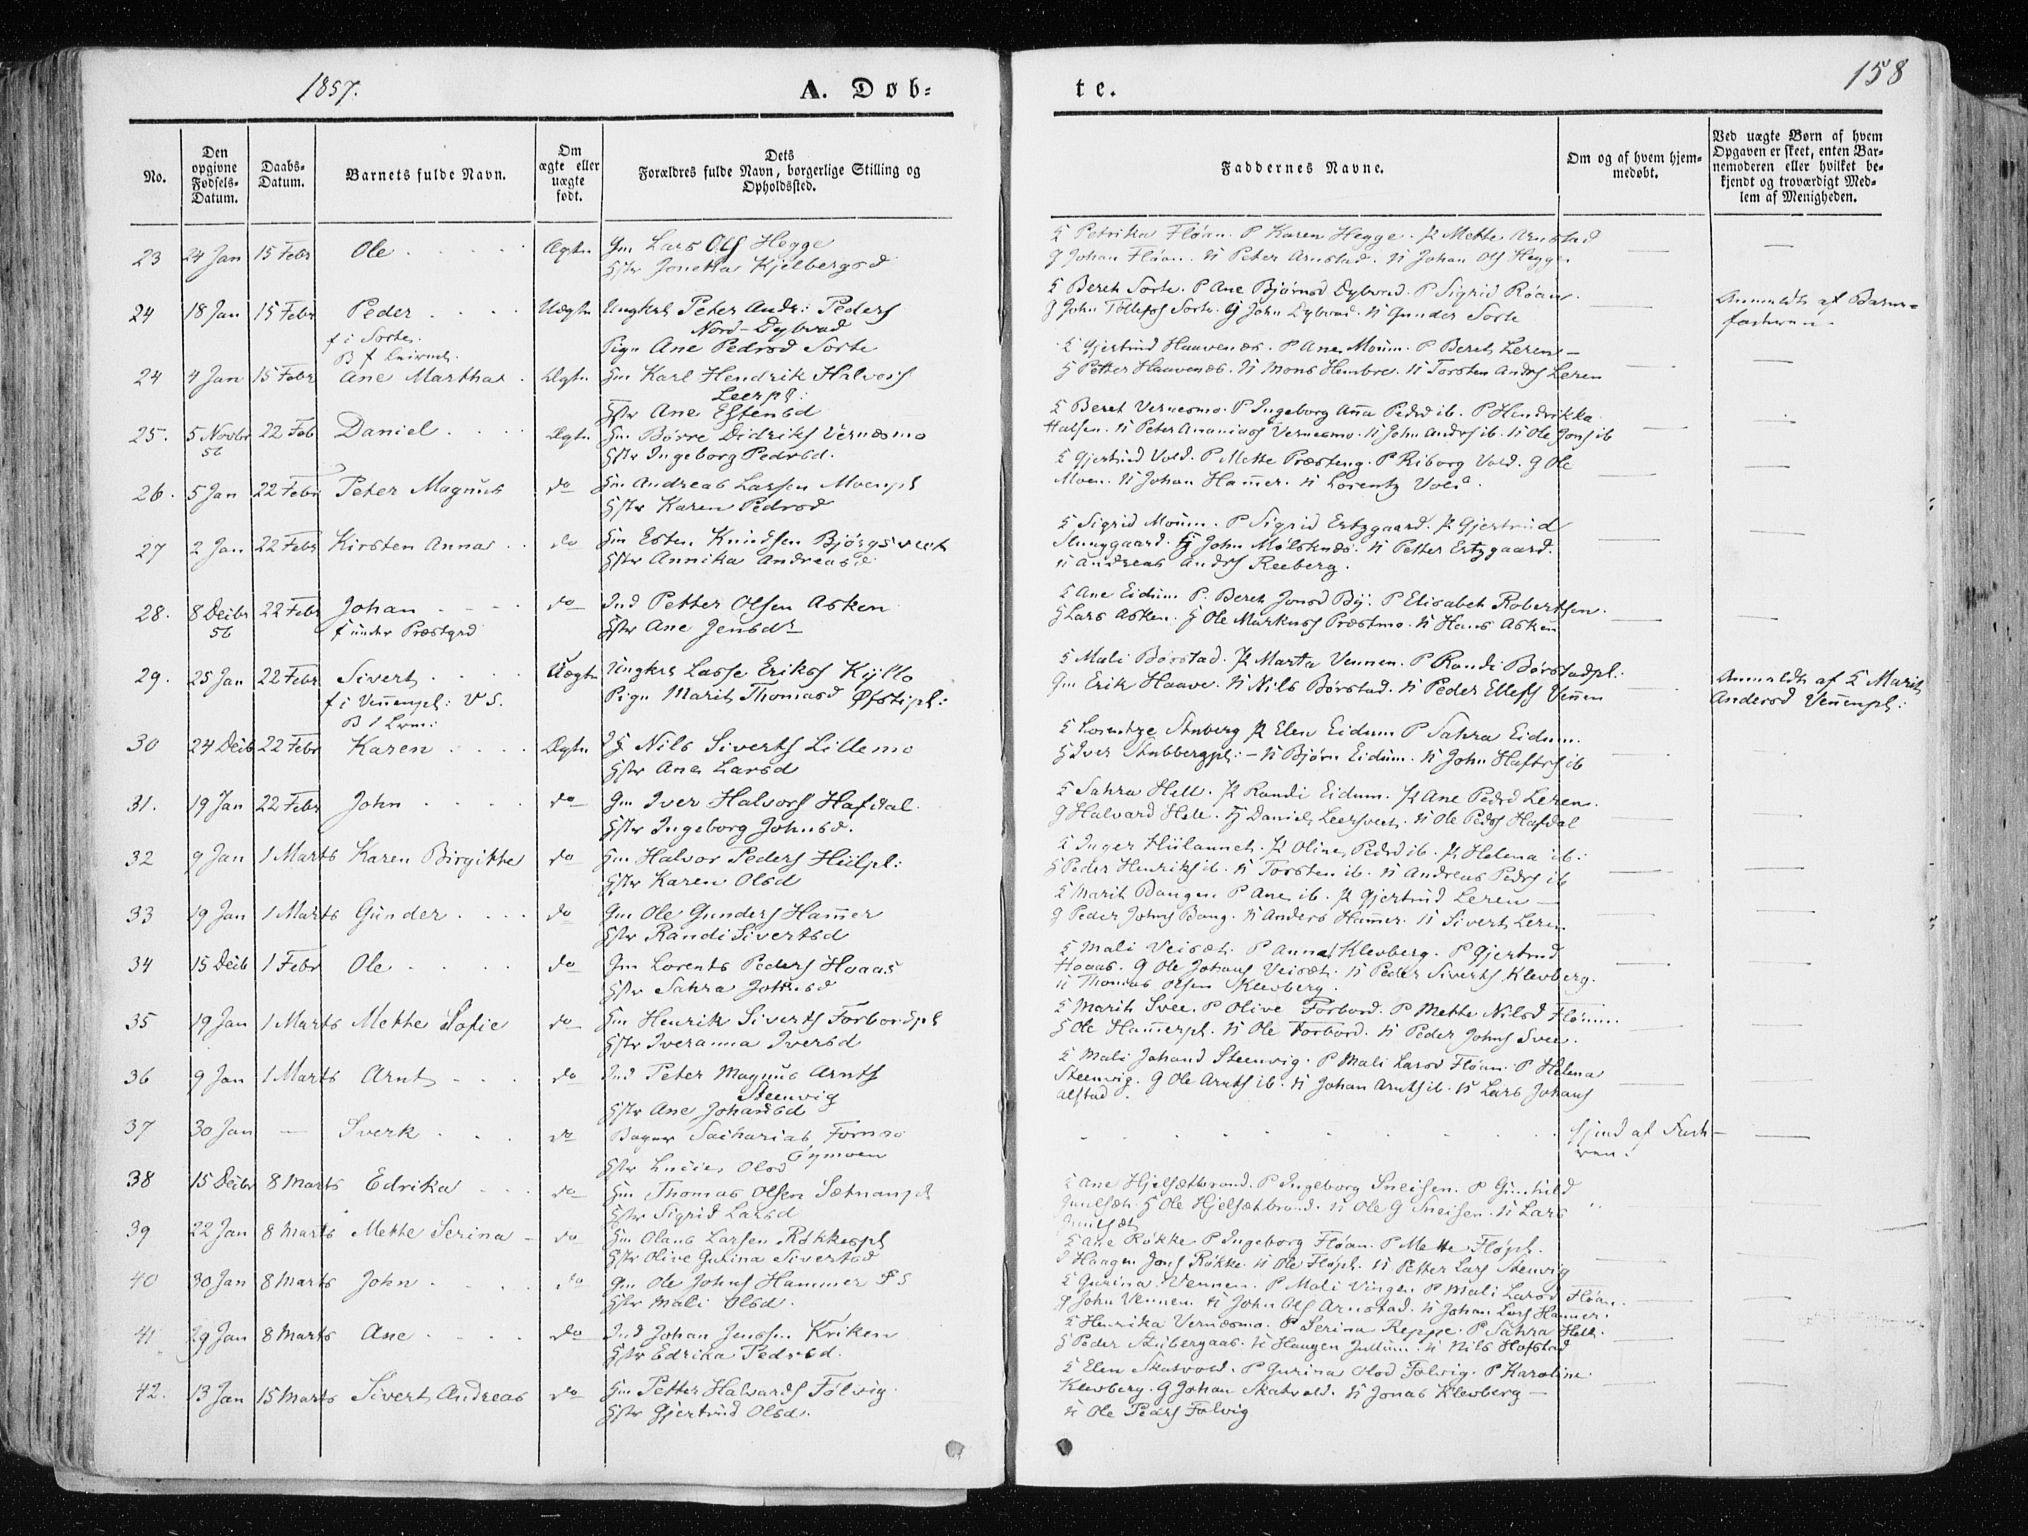 1857.
A. Døb-
te.
158
No.
Den
opgivne
Fødsels-
Datum.
Daabs-
Datum.
Barnets fulde Navn.
Om
ægte eller
uægte
født.
Dets
Forældres fulde Navn, borgerlige Stilling og
Opholdssted.
Faddernes Navne.
Om og af hvem hjem-
medøbt.
Ved uægte Børn af hvem
Opgaven er skeet, enten Bar-
nemoderen eller hvilket be-
kjendt og troværdigt Med-
lem af Menigheden.
23 24 Jan 15 Febr Ole Ægte Gm Lars Ols Hegge
Hstr Jonetta Kjelbergsd
Petrika Fløan. P Karen Hegge. Mette Arnstad
Johan Fløan. Peter Arnstad. Johan Ols Hegge
24 18 Jan 15 Febr Peder Uægte Ungkrl Peter Andr: Peders
Nord-Dybvad
f i Sorte.
Pige Ane Pedrsd Sorte
Beret Sorte. P Ane Bjørnsd Dybvad. P Sigrid Røan.
John Tollefss Sorte. G John Dybvad. Gunder Sorte
Anmeldt af Barne-
faderen.
24 4 Jan 15 Febr Ane Martha Ægte Hm Karl Hendrik Halvors
Leerpl:
Hstr Ane Estensd
Gjertrud Haavenæs. P Ane Moum. P Beret Leren
Petter Haavenæs. Mons Hembre. Torsten Andrs Leren
25. 5 Novbr 22 Feb Daniel Ægte Hm Børre Didriks Vernæsmo
56 Hstr Ingeborg Pedrsd.
Beret Vernesmo. P Ingeborg Anna Pedrsd ib. P Hendrikka
Halsen. Peter Ananiass Vernesmo. John Andrs ib. Ole Jons ib
26. 5 Jan 22 Febr Peter Magnus do Hm Andreas Larsen Moenpl
Hstr Karen Pedrsd
Gjertrud Vold. P Mette Præsteng. P Riborg Vold. G Ole
Moen. Johan Hammer. Lorentz Vold.
27 2 Jan 22 Febr Kirsten Anna do Hm Esten Knudsen Bjørgsvet
Hstr Annika Andreasd
Sigrid Moum. P Sigrid Ertzgaard. Gjertrud
John Mølsknæs. Petter Ertzgaard.
Andreas Andrs Reeberg.
28. 8 Decbr 22 Febr Johan do Ind Petter Olsen Asken
56 f under Præstgrd Hstr Ane Jensdr
Ane Eidum P. Beret Jonsd By. P Elisabet Robertsen.
Lars Asken. Ole Markuss Præstmo. Hans Asken
29. 25 Jan 22 Febr Sivert Uægte Ungkrl Lasse Eriks Kyllo
f i Vennenpl: V S. Pige Marit Thomasd Øfstipl:
Mali Børstad. Marta Vennen. P Randi Børstadpl:
Gm Erik Haave. Nils Børstad. Peder Ellefs Vennen
Anmeldt af Marit
Andersd Vennenpl:
30 24 Decb 22 Febr Karen Ægte Nils Siverts Lillemo
Hstr Ane Larsd
Lorentze Stuberg Elen Eidum P Sahra Eidum.
Iver Stubbergpl: Bjørn Eidum. John Hafters ib
31. 19 Jan 22 Febr John do Gm Iver Halvors Hafdal
Hstr Ingeborg Johnsd.
Sahra Hell. Randi Eidum. Ane Pedrsd Leren.
G Halvard Hell. Daniel Leersvet. Ole Pedrs Hafdal
32 9 Jan 1 Marts Karen Birgitte do Hm Halvor Peders Hellpl:
Hstr Karen Olsd
Inger Oline Pedrsd ib. Helena ib:
Peder Henriks ib. Torsten ib. Andreas Pedrs ib
33 19 Jan 1 Marts Gunder do Gm Ole Gunders Hammer
Hstr Randi Sivertsd
Marit Bangen P Ane ib. Gjertrud Leren
G Peder Johns Bang. Anders Hammer. Sivert Leren
34 15 Decb 1 Febr Ole do Gm Lorents Peders Haaas
Hstr Sahra Johnsd
Mali Veisæt. P Anna Klevberg. P Gjertrud
Haaas. G Ole Johans Veisæt. Peder Siverts Klevberg.
Thomas Olsen Klevberg.
35 19 Jan 1 Marts Mette Sofie do Hm Henrik Siverts Forbordpl
Hstr Iveranna Iversd
Marit Svee. P Olive Forbord. P Mette Nilsd Fløan.
Ole Hammerpl. Ole Forbord. Peder Johns Svee.
36 9 Jan 1 Marts Arnt do Ind Peter Magnus Arnts
Steenvig
Hstr Ane Johansd
Mali Johansd Steenvig. P Mali Larsd Fløan. P Helena
Steenvig. G Ole Arnts ib. Johan Arnts ib. Lars Johans
Alstad.
37 30 Jan — Sverk do Bager Sacharias Fornæs
Hstr Lucie Olsd
hjmd af Fade-
ren.
38 15 Decbr 8 Marts Edrika do Hm Thomas Olsen Sætnanpl
Hstr Sigrid Larsd
Ane Hjelsætbrand. P Ingeborg Sneisen. P Gunhild
Ole Hjelsætbrand. Ole G Sneisen. Lars
39 22 Jan 8 Marts Mette Serina do Hm Olaus Larsen Røkkepl
Hstr Olive Gurina Sivertsd
Ane Røkke P Ingeborg Fløan. P Mette Fløpl.
Haagen Jons Røkke. Ole Fløpl. Petter Lars Steenvig
40 30 Jan 8 Marts John do Gm Ole Johns Hammer
Hstr Mali Olsd.
Gurina Vennen. P Mali Vinge. P Mali Larsd Fløan.
John Vennen. John Ols Arnstad. Johan Lars Hammer.
41 29 Jan 8 Marts Ane do Ind Johan Jenssen Kriken
Hstr Edrika Pedrsd.
Henrika Vernæsmo. P Serina Reppe. P Sahra Hell.
Peder Stubergaas. Haagen Jullum. Nils Hofstad
42. 13 Jan 15 Marts Sivert Andreas do Hm Petter Halvards Følvig
Hstr Gjertrud Olsd.
Elen Skatvold. P Gurina Olsd Følvig. P Karoline
Klevberg. G Johan Skatvold. Jonas Klevberg
Ole Pedrs Følvig